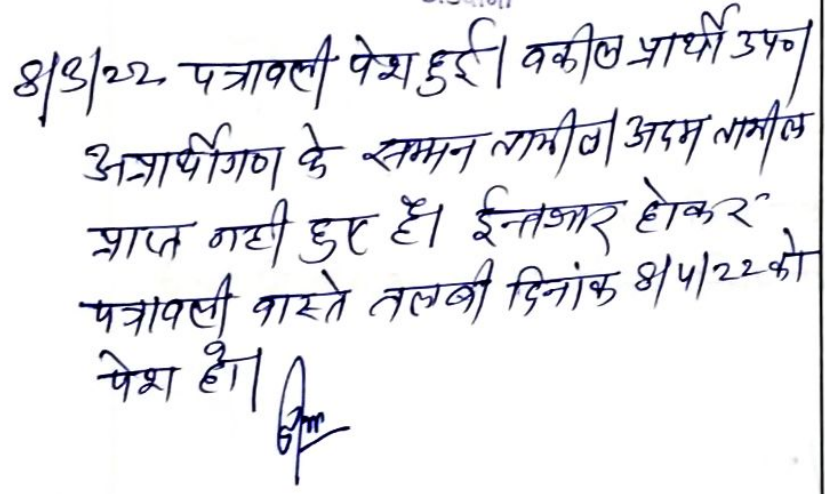 8/3/22 पत्रावली पेश हुई। वकील प्रार्थी उप०।
अप्रार्थीगण के सम्मन तामील/अदम तामील
प्राप्त नही हुए है। ईन्तजार होकर
पत्रावली वास्ते तलबी दिनांक 8/4/22 को
पेश हो।